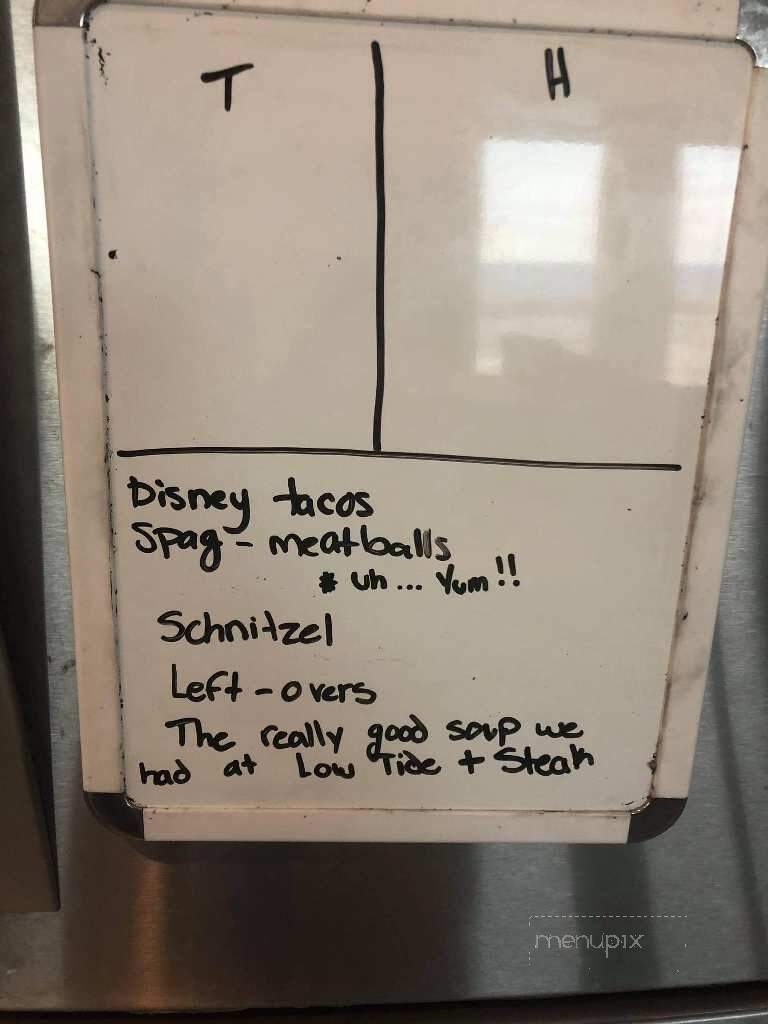 T
H
Disney tacos
Spag - meatballs
* uh ... Yum !!
Schnitzel
Left - overs
The really good soup we
had at Low Tide + Steak
menupix